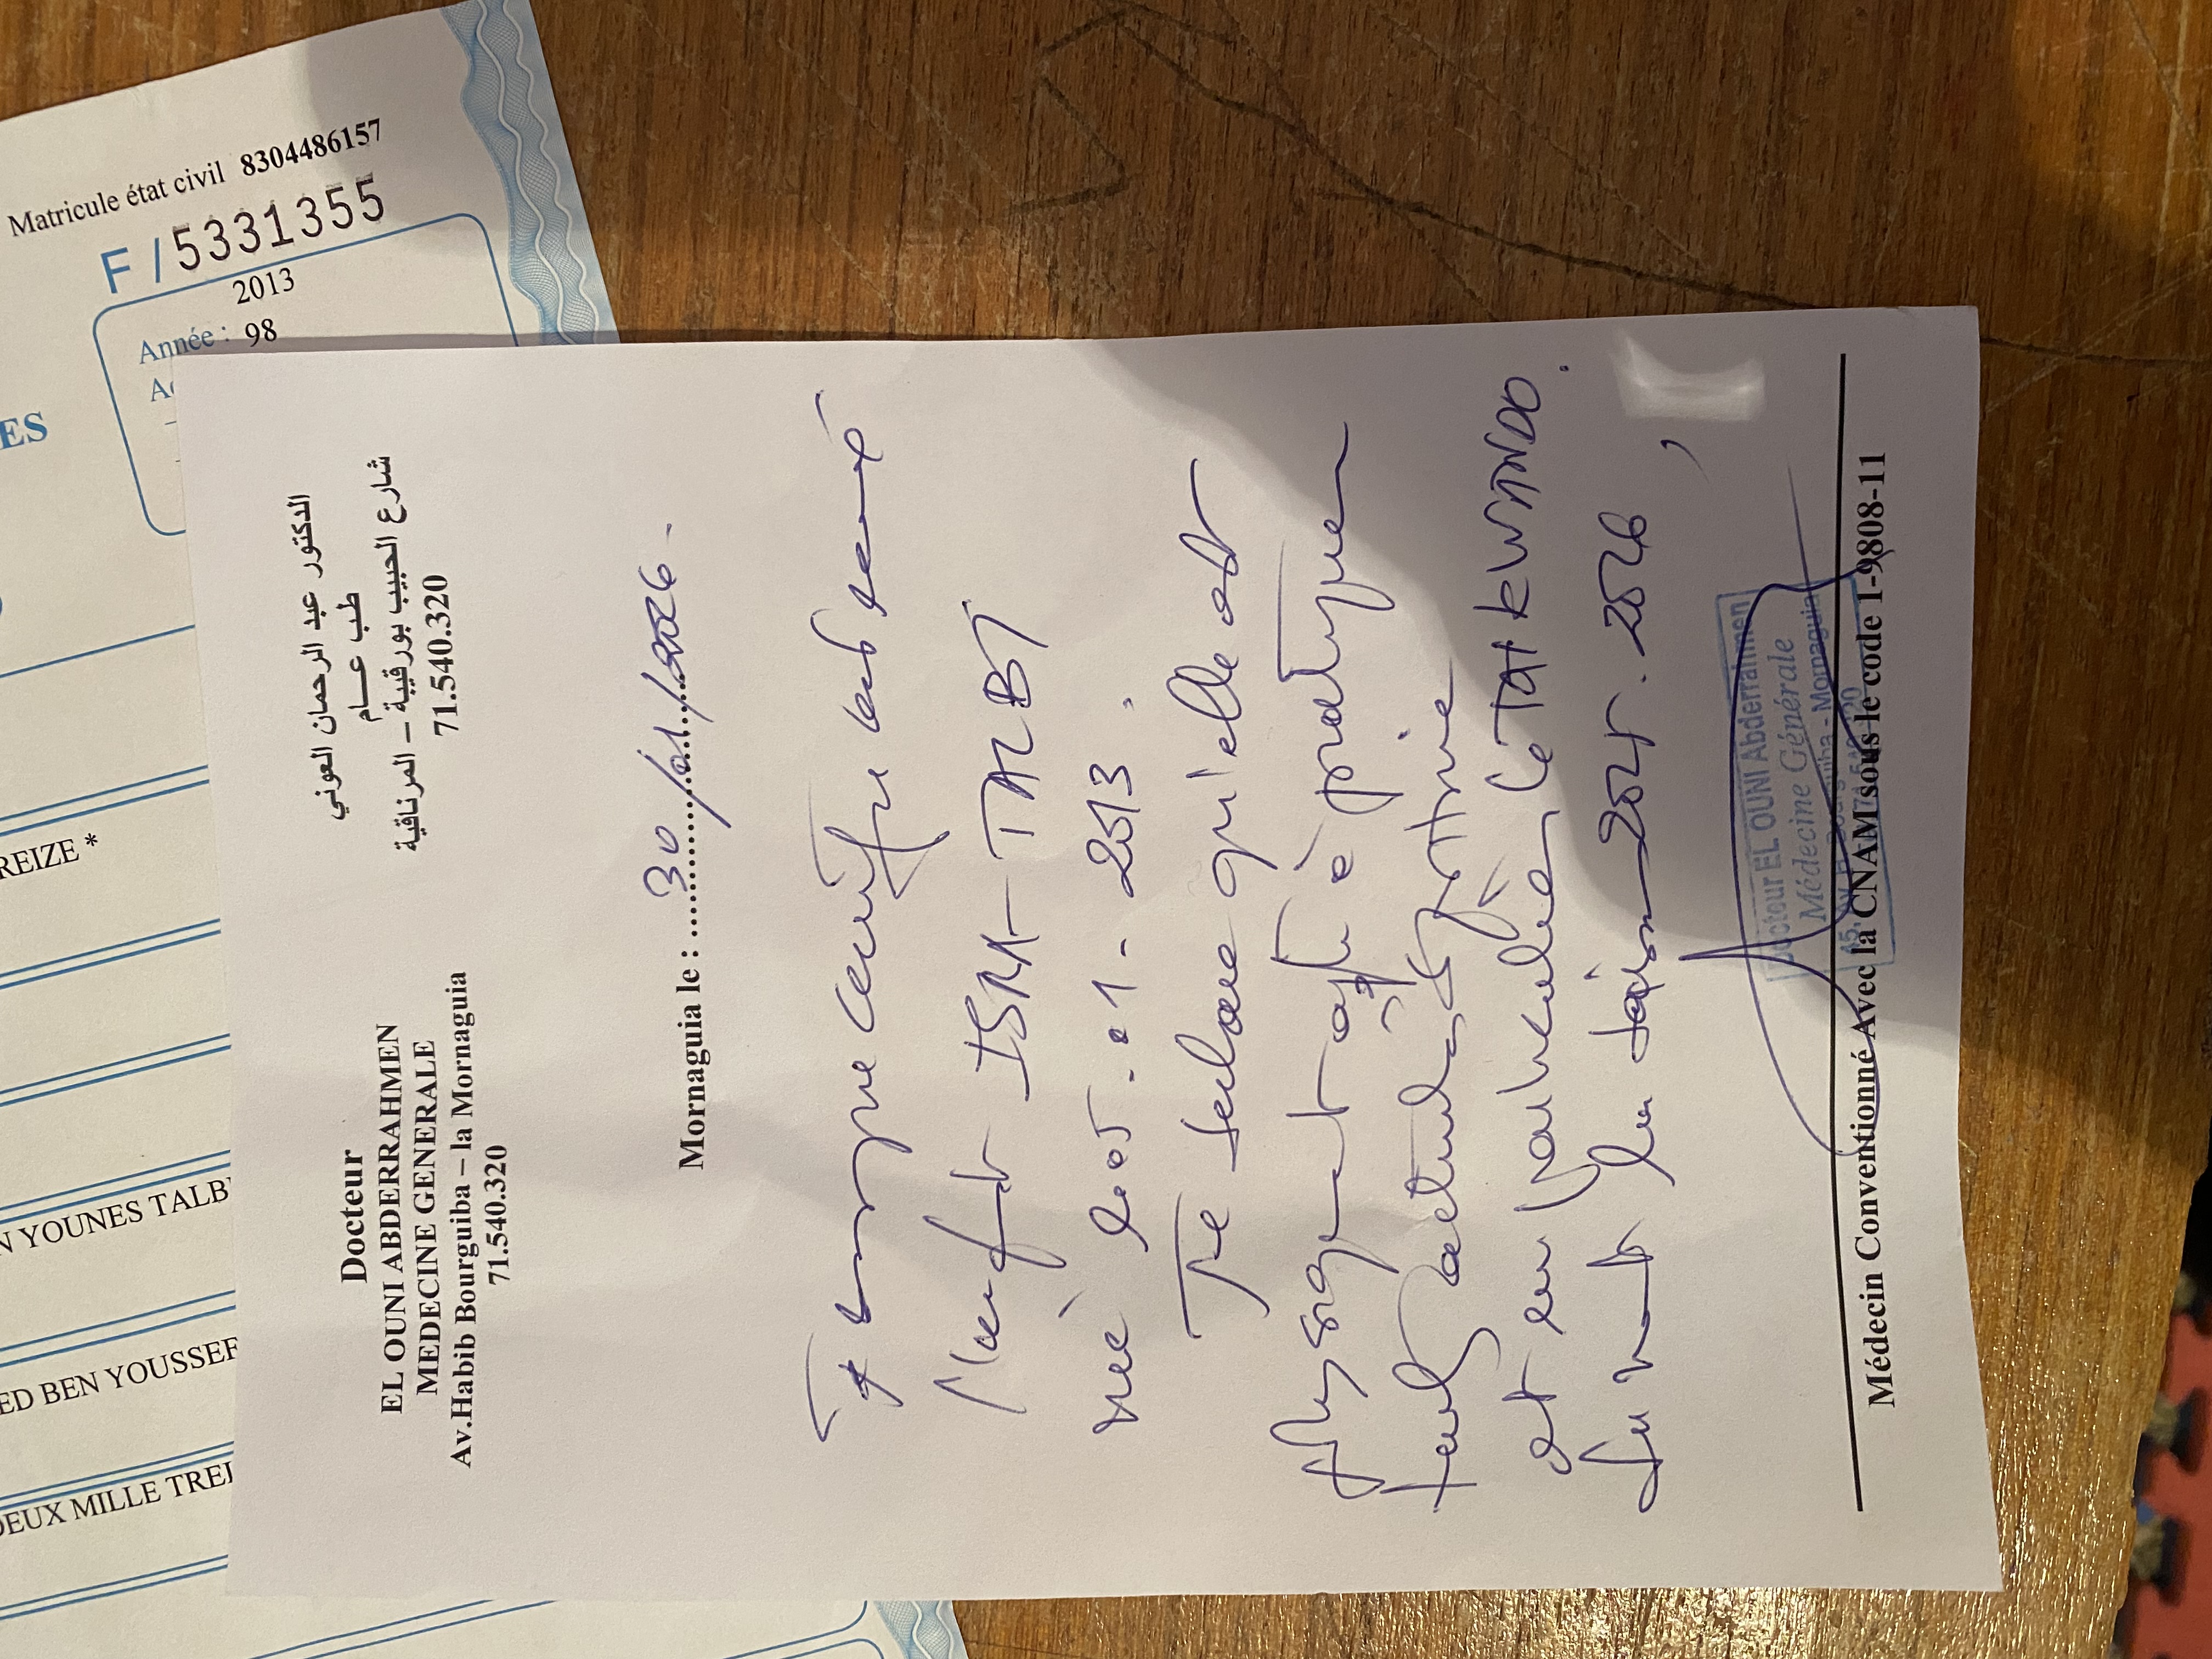 Matricule état civil 8304486157
F/5331355
2013
Année : 98
ES
REIZE *
N YOUNES TALB
ED BEN YOUSSEF
DEUX MILLE TREI
Docteur
EL OUNI ABDERRAHMEN
MEDECINE GENERALE
Av.Habib Bourguiba – la Mornaguia
71.540.320
الدكتور عبد الرحمان العوني
طب عـــام
شارع الحبيب بورقيبة – المرناقية
71.540.320
Mornaguia le : 30/01/2026.
Je soussigné certifie
l'enfant ISRA TALBI
née le 05.01.2013.
Je déclare qu'elle est
physiquement apte à pratiquer
toute activité sportive
et en particulier le TAEKWANDO.
durant la saison 2025.2026
Docteur EL OUNI Abderrahmen
Médecine Générale
45, Av. H. Bourguiba - Mornaguia
Médecin Conventionné Avec la CNAM sous le code 1-9808-11